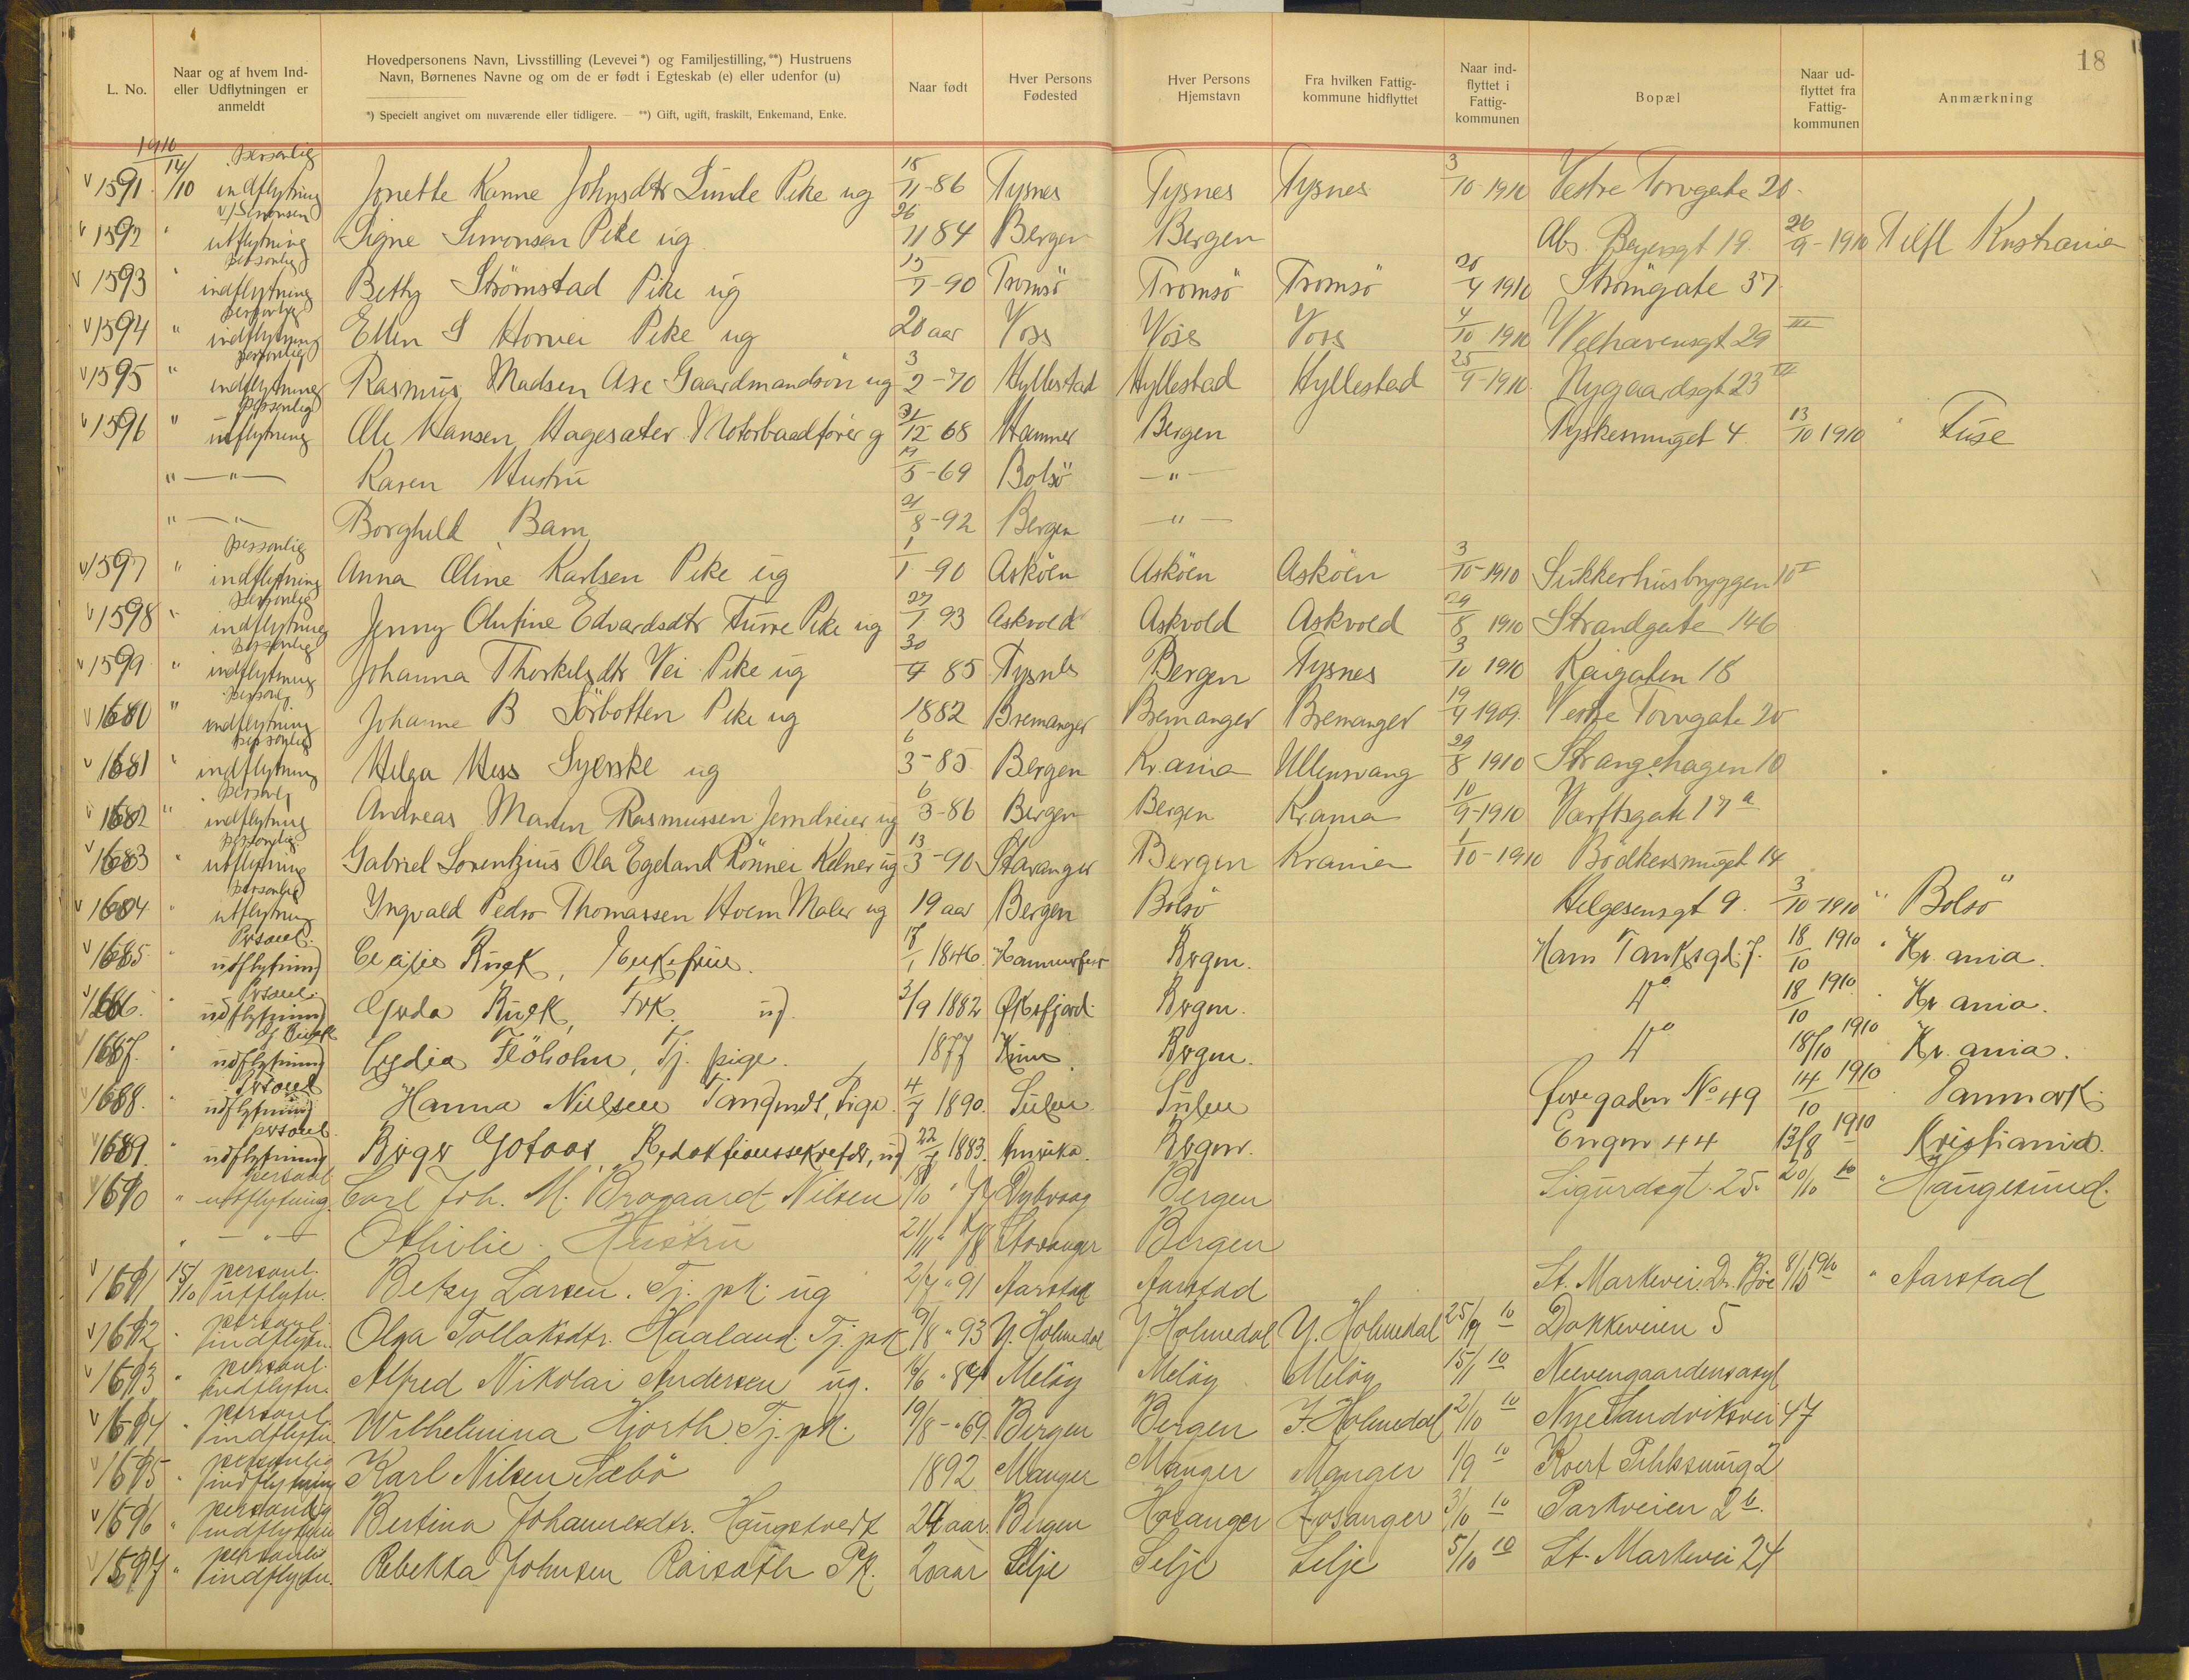 18
L. No. Naar og af hvem Ind- eller Udflytningen er anmeldt Hovedpersonens Navn, Livsstilling (Levevei*) og Familjestilling,**) Hustruens Navn, Børnenes Navne og om de er født i Egteskab (e) eller udenfor (u) Naar født Hver Persons Fødested Hver Persons Hjemstavn Fra hvilken Fattig- kommune hidflyttet Naar ind- flyttet i Fattig- kommunen Bopæl Naar ud- flyttet fra Fattig- kommunen Anmærkning
*) Specielt angivet om nuværende eller tidligere. — **) Gift, ugift, fraskilt, Enkemand, Enke.
1910
v 1591 14/10 personlig indflytning Jonette Kanne Johnsdtr Lunde Pike ug 18/11-86 Tysnes Tysnes Tysnes 3/10 1910 Vestre Torvgate 20
v 1592 " v/Simonsen utflytning Signe Simonsen Pike ug 26/11 84 Bergen Bergen Abs. Beyersgt 19 26/9-1910 Tilfl Kristiania
v 1593 " personlig indflytning Betty Strömstad Pike ug 13/7-90 Tromsö Tromsö Tromsö 20/4 1910 Strömgate 37
v 1594 " personlig indflytning Ellen S Horvei Pike ug 20 aar Voss Voss Voss 4/10 1910 Welhavensgt 29 III
v 1595 " personlig indflytning Rasmus Madsen Ase Gaardmandsön ug 3/2-70 Hyllestad Hyllestad Hyllestad 25/9-1910 Nygaardsgt 23 III
v 1596 " personlig utflytning Ole Hansen Hagesæter Motorbaadförer g 31/12 68 Hammer Bergen Tyskesmuget 4 13/10 1910 " Fuse
" — " — Karen Hustru 14/5-69 Bolsö — " —
" — " Borghild Barn 21/8-92 Bergen — " —
v 1597 " personlig indflytning Anna Oline Karlsen Pike ug 1/1-90 Asköen Asköen Asköen 3/10-1910 Sukkerhusbryggen 10 I
v 1598 " personlig indflytning Jenny Olufine Edvardsdtr Furre Pike ug 27/1 93 Askvold Askvold Askvold 29/8 1910 Strandgate 146
v 1599 " personlig indflytning Johanna Thorkilsdtr Vei Pike ug 30/4 85 Tysnes Bergen Tysnes 3/10 1910 Kaigaten 18
v 1680 " personlig indflytning Johanne B Sörbotten Pike ug 1882 Bremanger Bremanger Bremanger 19/4 1909 Vestre Torvgate 20
v 1681 " personlig indflytning Helga Hess Syerske ug 6/3-85 Bergen Kr.ania Ullensvang 29/8 1910 Strangehagen 10
v 1682 " personlig indflytning Andreas Martin Rasmussen Jerndreier ug 6/3-86 Bergen Bergen Krania 10/9-1910 Verftsgate 17 a
v 1683 " personlig utflytning Gabriel Lorentzius Ola Egeland Rönnei Kelner ug 13/3-90 Stavanger Bergen Krania 1/10-1910 Bödkersmuget 14
v 1684 " personlig utflytning Ingvald Pedro Thomassen Hoem Maler ug 19 aar Bergen Bolsö Helgesensgt 9 3/10 1910 " Bolsö
v 1685 " Personl. udflytning Cecilie Ruck, Enkefrue. 18/1 1846 Hammerfest Bergen. Ham Tanksgd. 7. 18/10 1910 " Kr. ania.
v 1686. " Personl. udflytning Gyda Ruck, Frk. ug. 3/9 1882 Øksfjord Bergen. Do 18/10 1910 Kr ania.
1687. " af Ruck udflytning Lydia Flöholm, Tj. pige. 1877 Kinn Bergen. Do 18/10 1910 Kr. ania.
v 1688. " Personl udflytning Hanna Nielsen Tangendt, Pige. 4/7 1890. Sulen Sulen Øvregaden No 49 14/10 1910 Danmark.
v 1689. " personl. udflytning Birger Gotaas, Redaktionssekretær, ug 22/7 1883. Amerika. Bergen. Engen 44 13/8 1910 Kristiania.
v 1690 " personl utflytning. Carl Joh. M. Brogaard Nilsen 18/10 " 77 Dybvaag Bergen Sigurdsgt. 25. 20/10 10 " Haugesund.
" — " — Othilie. Hustru 21/11 " 78 Stavanger Bergen
v 1691 15/10 personl. utflytn. Betsy Larsen. Tj. pk. ug 2/7 " 91 Aarstad Aarstad St. Markvei. Dr. Böe 8/10 1910 " Aarstad
v 1692 " personl. indflytn. Olga Tollaksdtr. Haaland. Tj. pk 9/8 " 93 Y. Holmedal Y. Holmedal Y. Holmedal 25/9 10 Dokkeveien 5
v 1693 " personl. indflytn. Alfred Nikolai Andersen ug. 16/6 " 84 Melöy Melöy Melöy 15/1 10 Neevengaardensasyl
v 1694 " personl. indflytn. Wilhelmina Hjorth. Tj. pk. 19/8 - " 69. Bergen Bergen I. Holmedal 2/10 10 Nye Sandviksvei 47
v 1695 " personlig indflytning Karl Nilsen Sæbö 1892 Manger Manger Manger 1/9 10
v 1696 " personlig indflytning Bertina Johannesdtr. Haugstvedt 24 aar. Bergen Hosanger Hosanger 3/10 10 Parkveien 2 b.
v 1597 " personlig indflytn. Rebekka Johnsen Pk. 20 aar Selje Selje Selje 5/10 10 St. Markvei 24